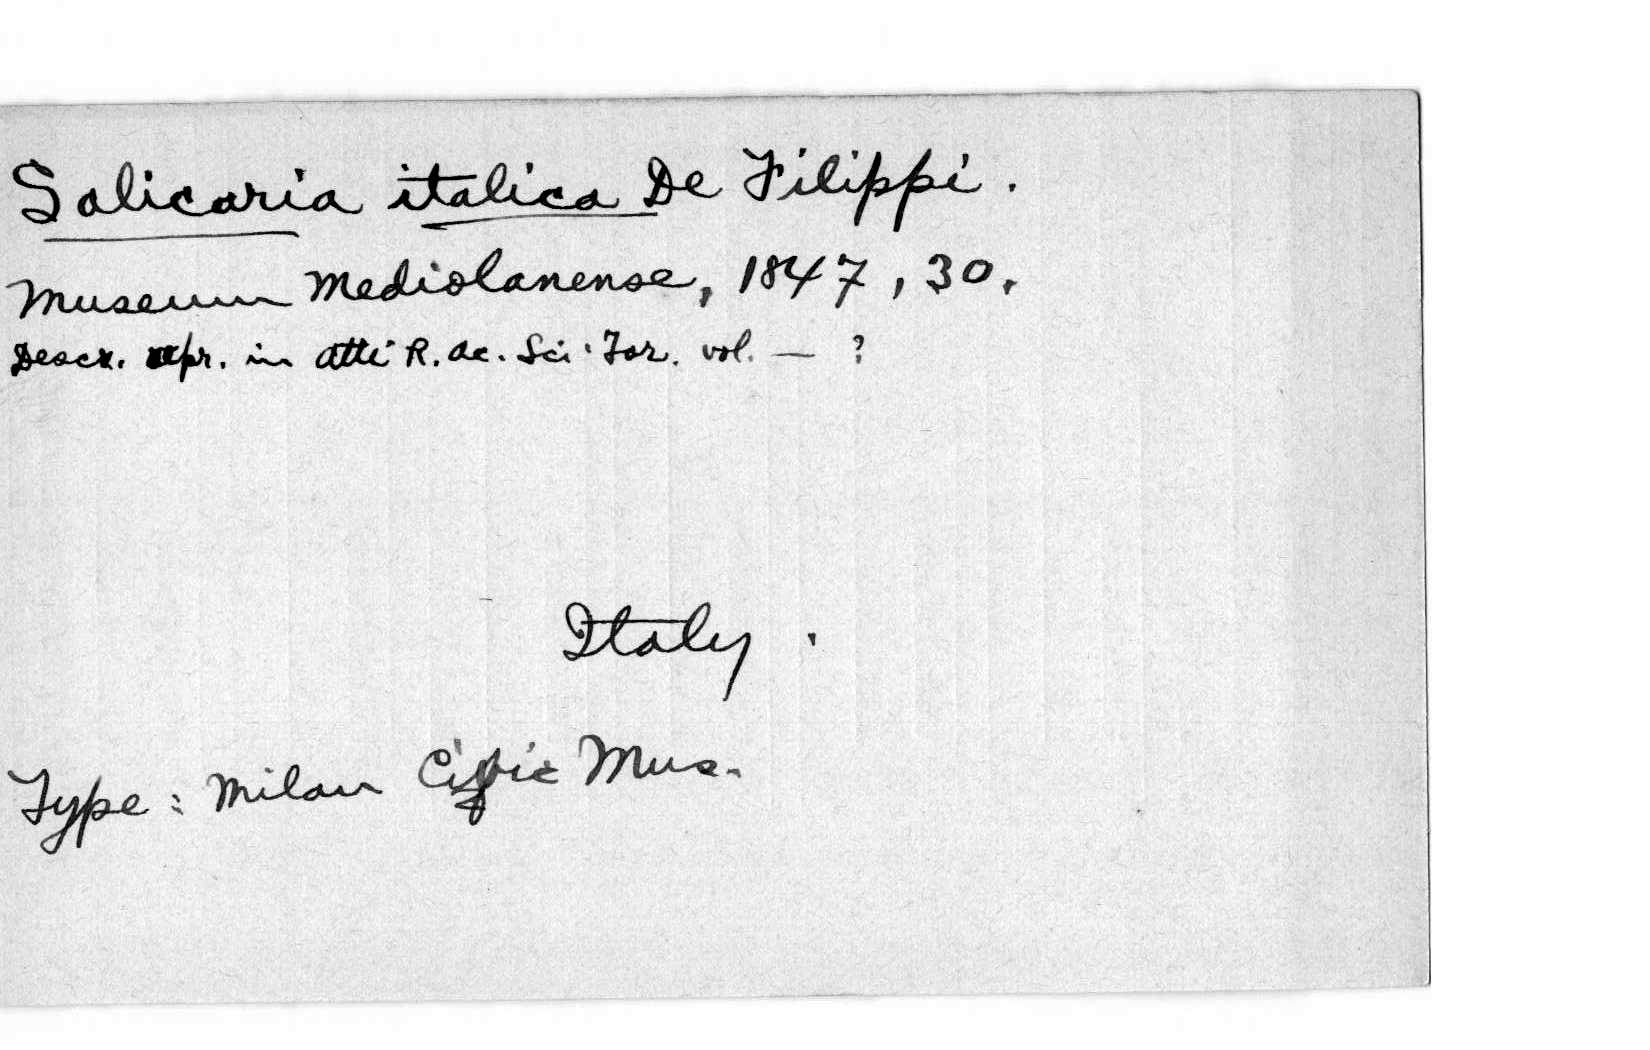 Salicaria italica De Filippi.
Museum Mediolanense, 1847, 30.
Descr. repr. in Atti R. Ac. Sci. Tor. vol. — ?
Italy.
Type: Milan Civic Mus.